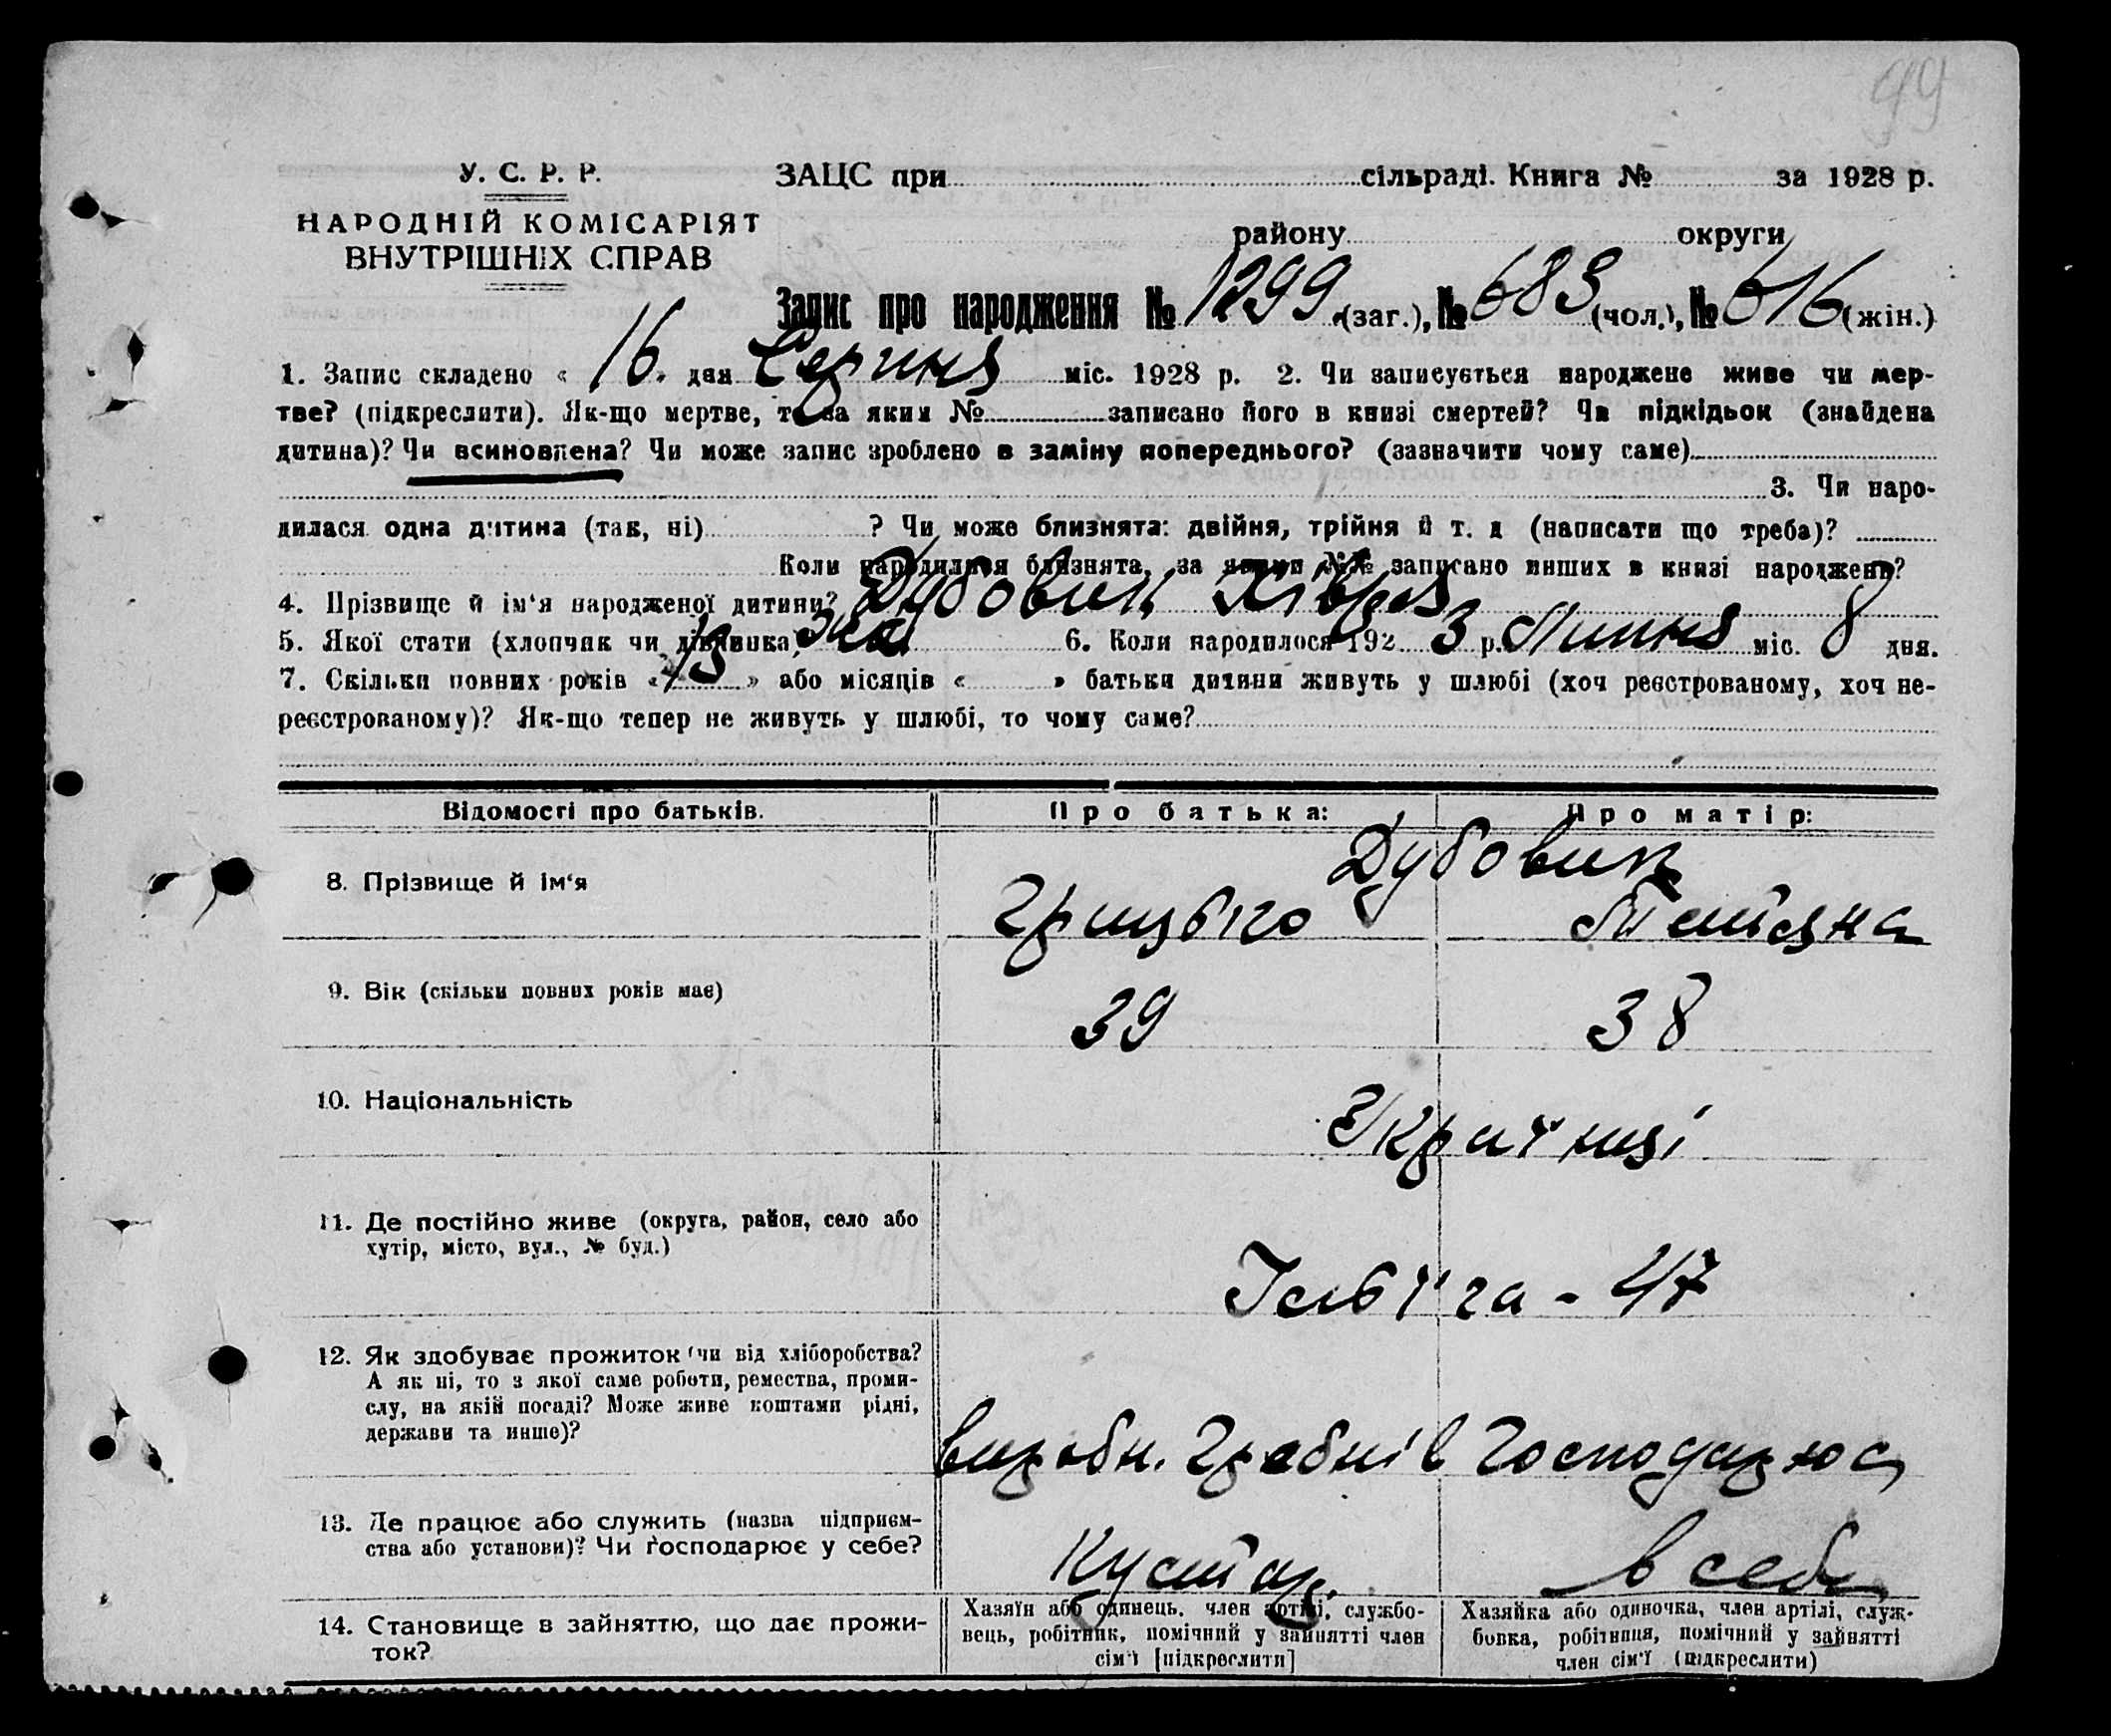 99
У. С. Р. Р.
НАРОДНІЙ КОМІСАРІЯТ
ВНУТРІШНІХ СПРАВ
ЗАЦС при сільраді. Книга № за 1928 р.
району округи
Запис про народження № 1299 (заг.), № 683 (чол.), № 616 (жін.)
1. Запис складено « 16 » дня Серпня міс. 1928 р. 2. Чи записується народжене живе чи мер-
тве? (підкреслити). Як-що мертве, то за яким № записано його в книзі смертей? Чи підкідьок (знайдена
дитина)? Чи всиновлена? Чи може запис зроблено в заміну попереднього? (зазначити чому саме)
3. Чи наро-
дилася одна дитина (так, ні) ? Чи може близнята: двійня, трійня й т. д (написати що треба)?
Коли народилися близнята, за якими №№ записано инших в книзі народжень?
4. Прізвище й ім'я народженої дитини? Дубовик
5. Якої стати (хлопчик чи дівчинка) жін 6. Коли народилося 192 3 р. Липня міс. 8 дня.
7. Скільки повних років « 13 » або місяців « » батьки дитини живуть у шлюбі (хоч реєстрованому, хоч не-
реєстрованому)? Як-що тепер не живуть у шлюбі, то чому саме?
Відомості про батьків. Про батька: Про матір:
8. Прізвище й ім'я Дубовик
Грицько Тетяна
9. Вік (скільки повних років має) 39 38
10. Національність Українці
11. Де постійно живе (округа, район, село або
хутір, місто, вул., № буд.)
47
12. Як здобуває прожиток (чи від хліборобства?
А як ні, то з якої саме роботи, ремества, проми-
слу, на якій посаді? Може живе коштами рідні,
держави та инше)?
виробн. Гребнів Господарює
13. Де працює або служить (назва підприєм-
ства або установи)? Чи господарює у себе?
Кустар. в себе
14. Становище в зайняттю, що дає прожи-
ток?
Хазяїн або одинець, член артілі, службо-
вець, робітник, помічний у зайнятті член
сім'ї [підкреслити]
Хазяйка або одиночка, член артілі, служ-
бовка, робітниця, помічний у зайнятті
член сім'ї (підкреслити)